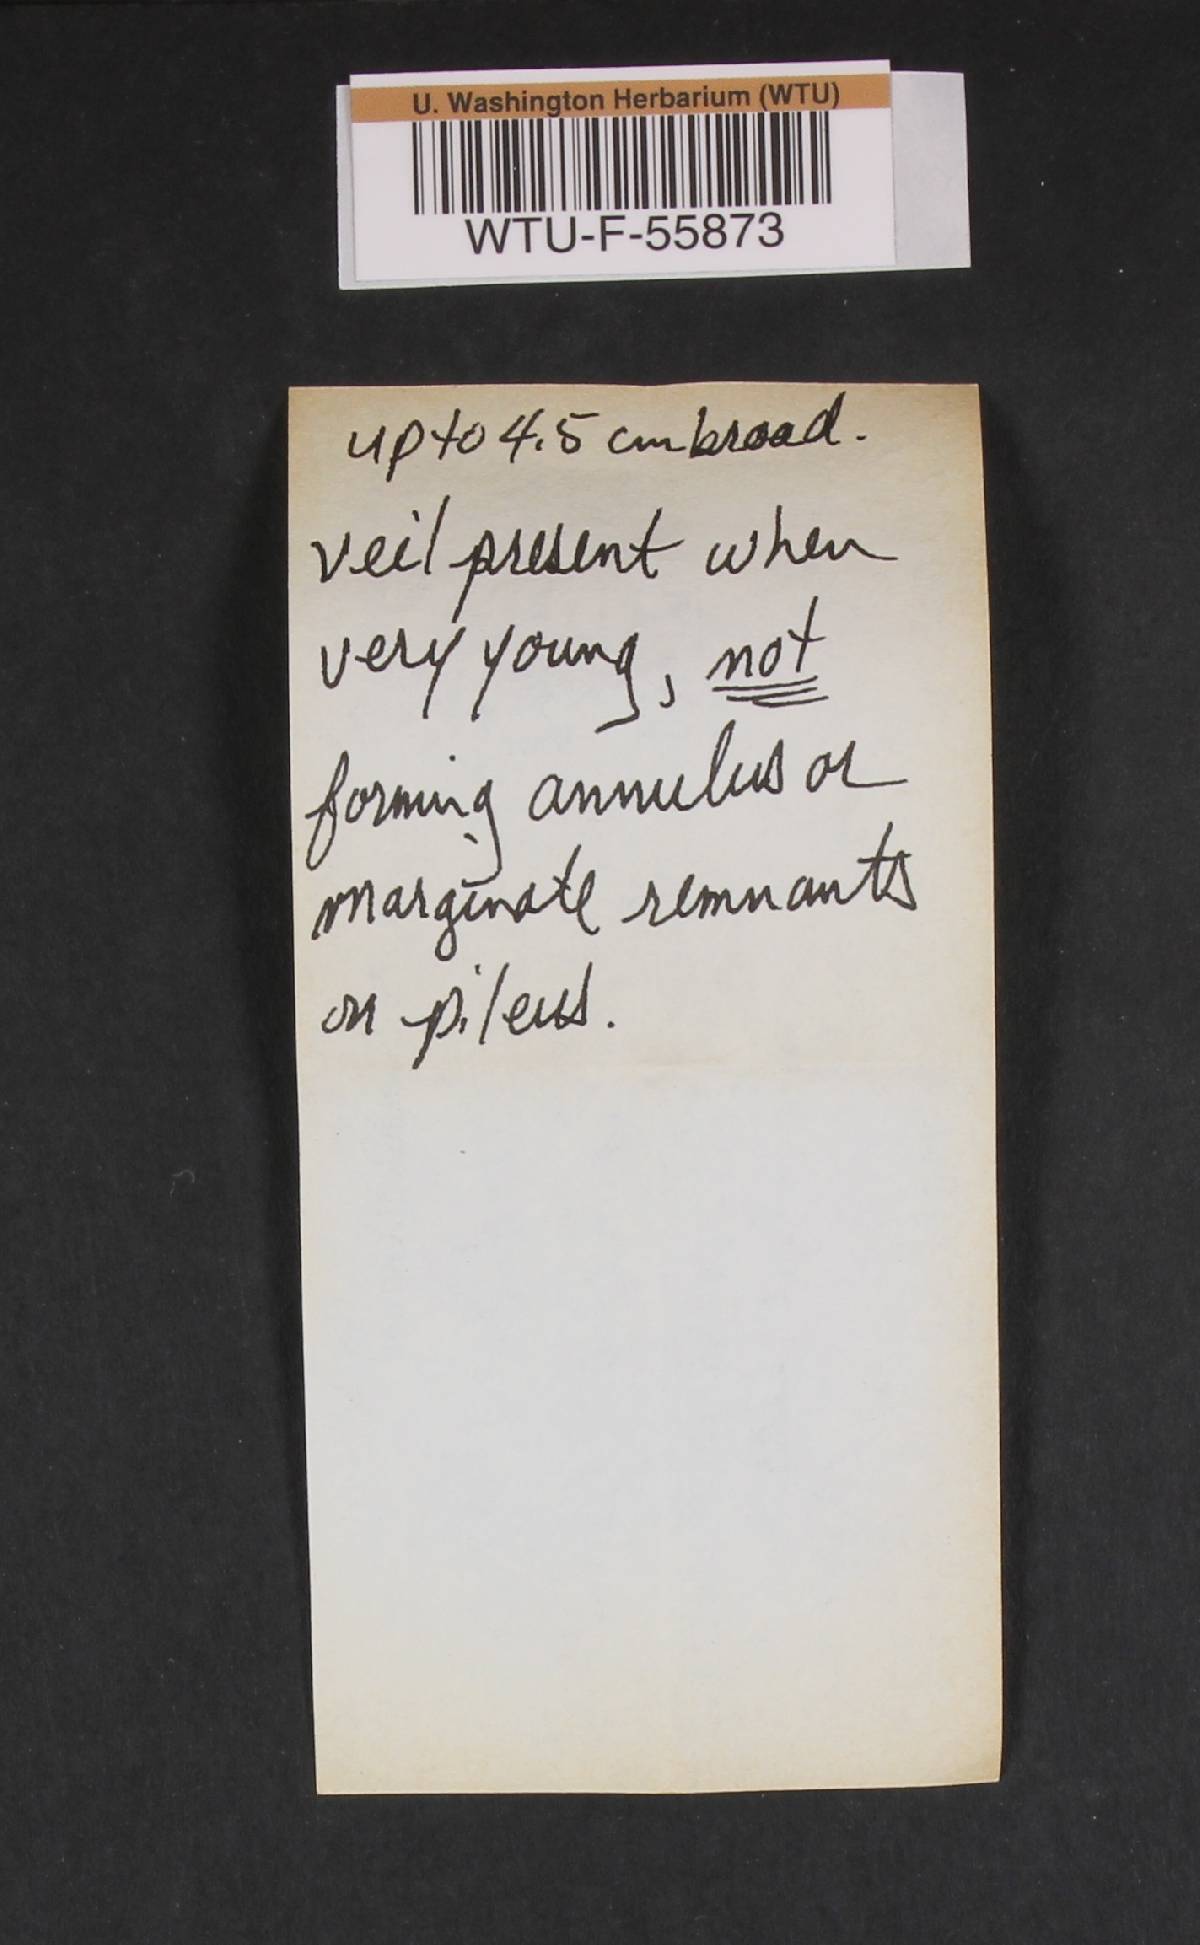 U. Washington Herbarium (WTU)
WTU-F-55873
up to 4.5 cm broad.
veil present when
very young, not
forming annulus or
marginate remnants
on pileus.